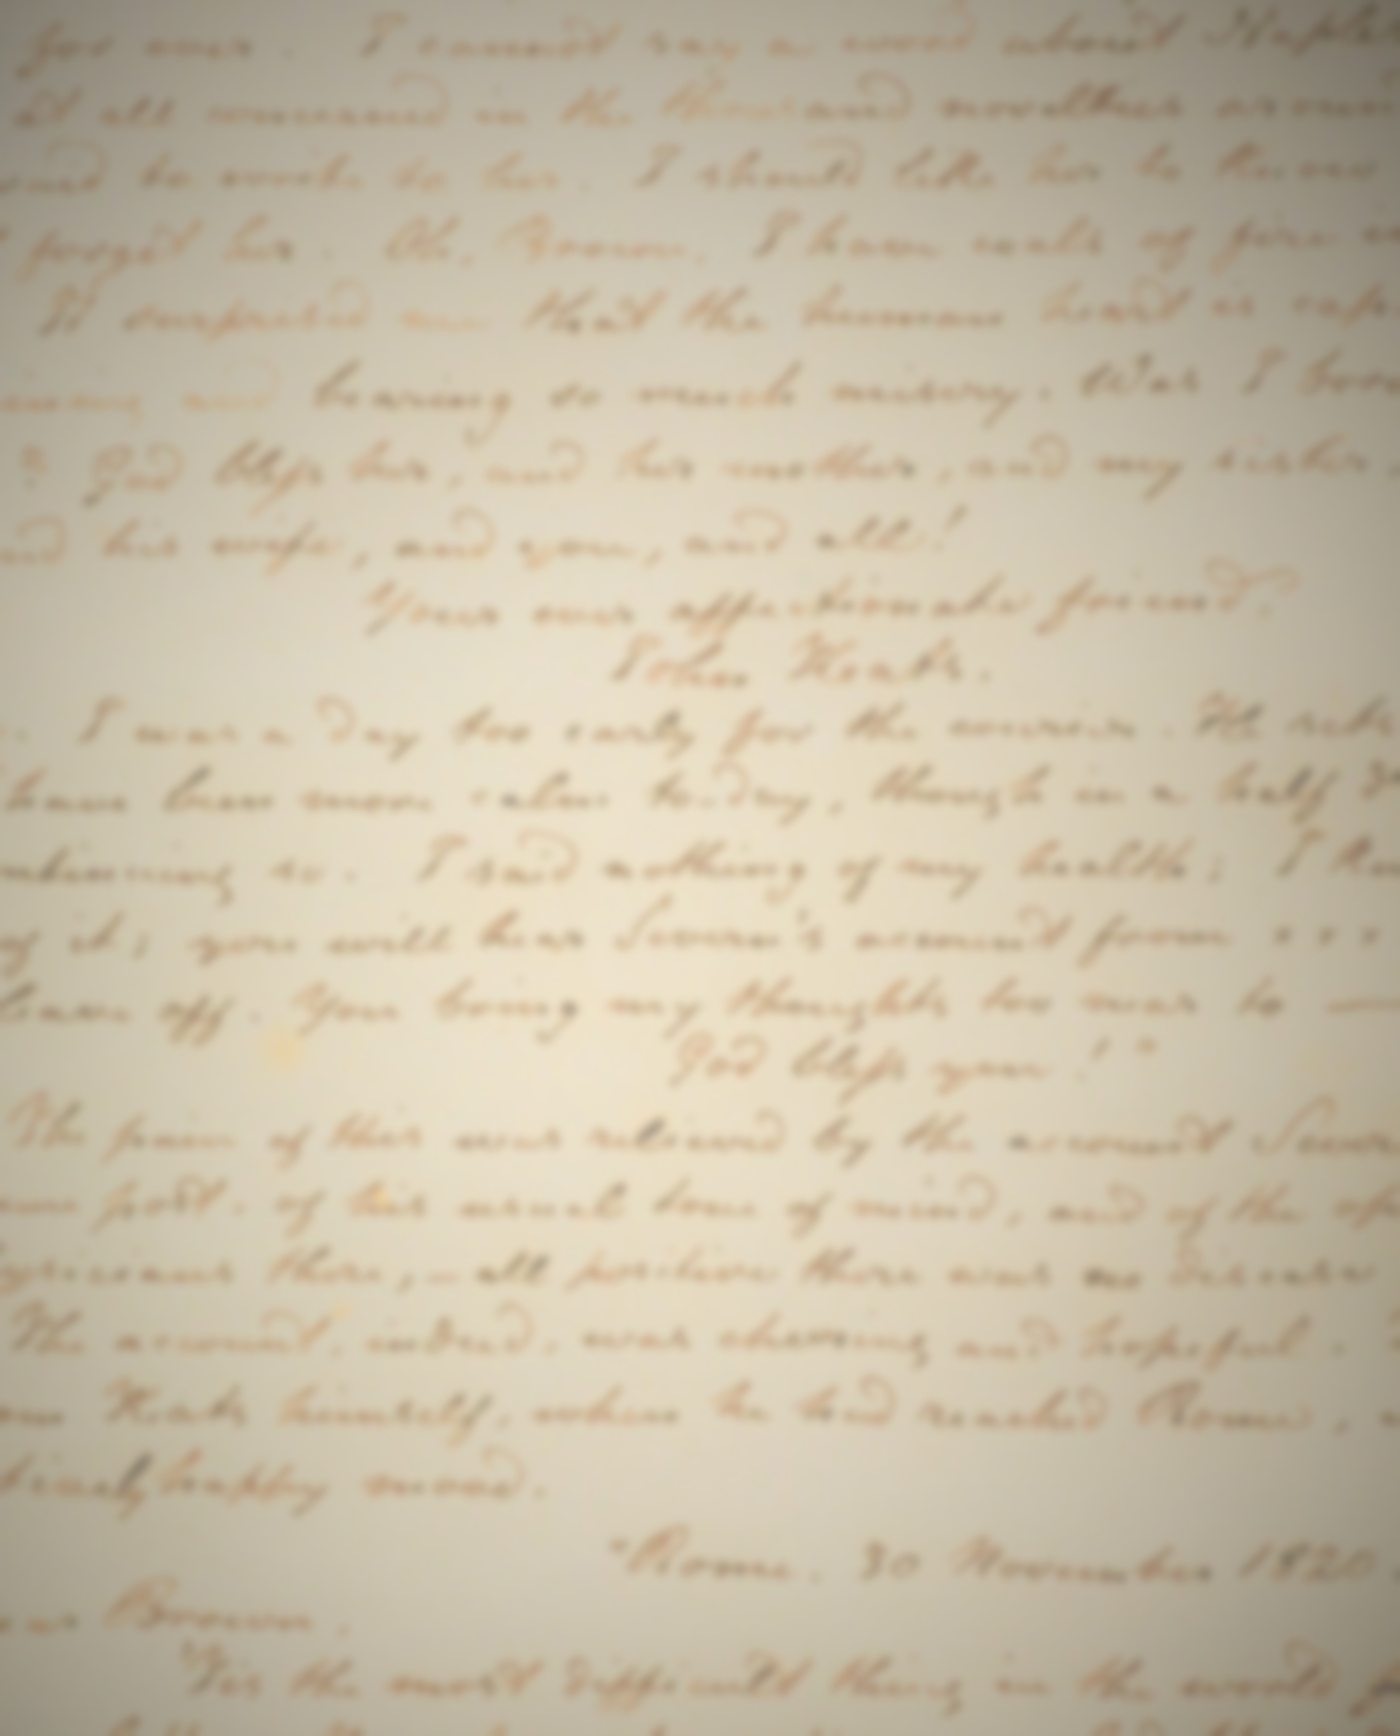 for ever. I cannot say a word about Naples
at all concerned in the thousand novelties
to write to her. I should like her to know
forget her. Oh, Brown, I have coals of fire
It surprised me that the human heart is
and bearing so much misery. Was I born
? God bless her, and her mother, and my sister,
his wife, and you, and all!
Your ever affectionate friend,
John Keats.
I was a day too early for the courier. He sets
have been more calm to-day, though in a half
so. I said nothing of my health; I know
of it; you will hear Severn's account from x x x
leave off. You bring my thoughts too near to —
God bless you!"
The pain of this was relieved by the account
post, of his usual tone of mind, and of the
there, – all positive there was no disease
The account, indeed, was cheering and hopeful.
Keats himself, when he had reached Rome,
happy mood.
"Rome. 30 November 1820.
Brown,
'Tis the most difficult thing in the world